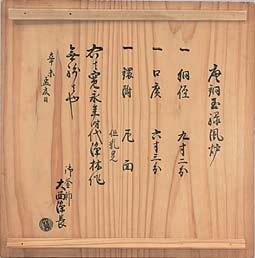 唐銅玉縁風炉
一 胴径 九寸二分
一 口廣 六寸三分
一 鐶附 鬼面
但乳足
右者寛永年時代浄林作
無紛者也
辛未孟夏日
御釜師
大西浄長